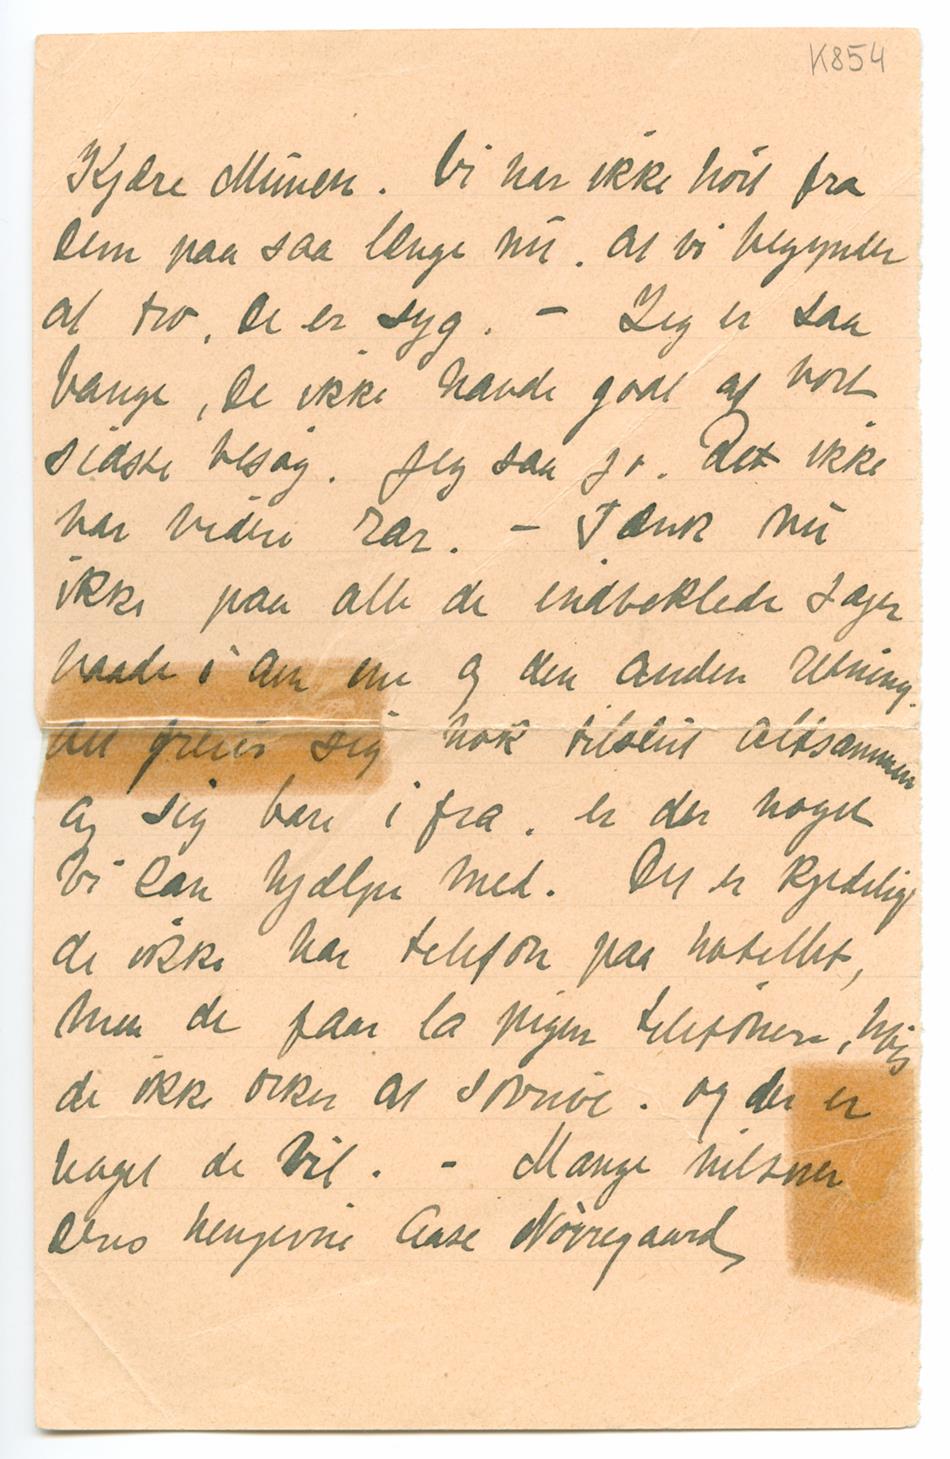 K854
Kjære Munch. Vi har ikke hört fra
Dem paa saa længe nu. at vi begynder
at tro, De er syg. – Jeg er saa
bange, De ikke havde godt af vort
sidste besög. Jeg saa jo. Det ikke
var videre rar. – Tænk nu
ikke paa alle de indviklede sager
baade i den ene og den anden retning.
Det greier sig nok tilslut altsammen
og sig bare i fra. er der noget
Vi kan hjælpe med. Det er kjedelig
de ikke har telefon paa hotellet,
men de faar la pigen telefonere, hvis
de ikke orker at skrive. og der er
noget de vil. – Mange hilsner
Deres hengivne Aase Nörregaard